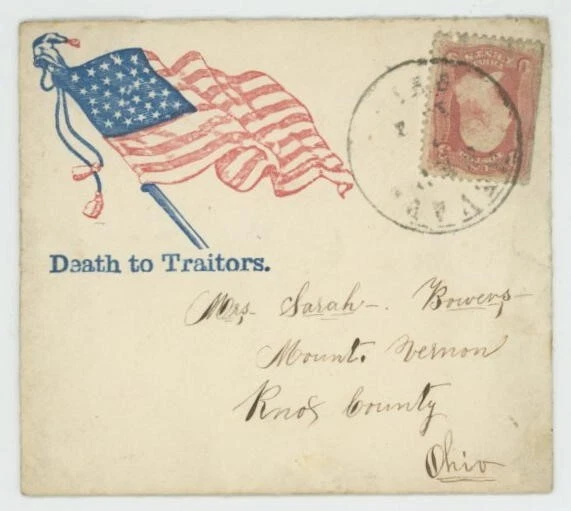 Death to Traitors.
Mrs Sarah Bowers
Mount. Vernon
Knox County
Ohio